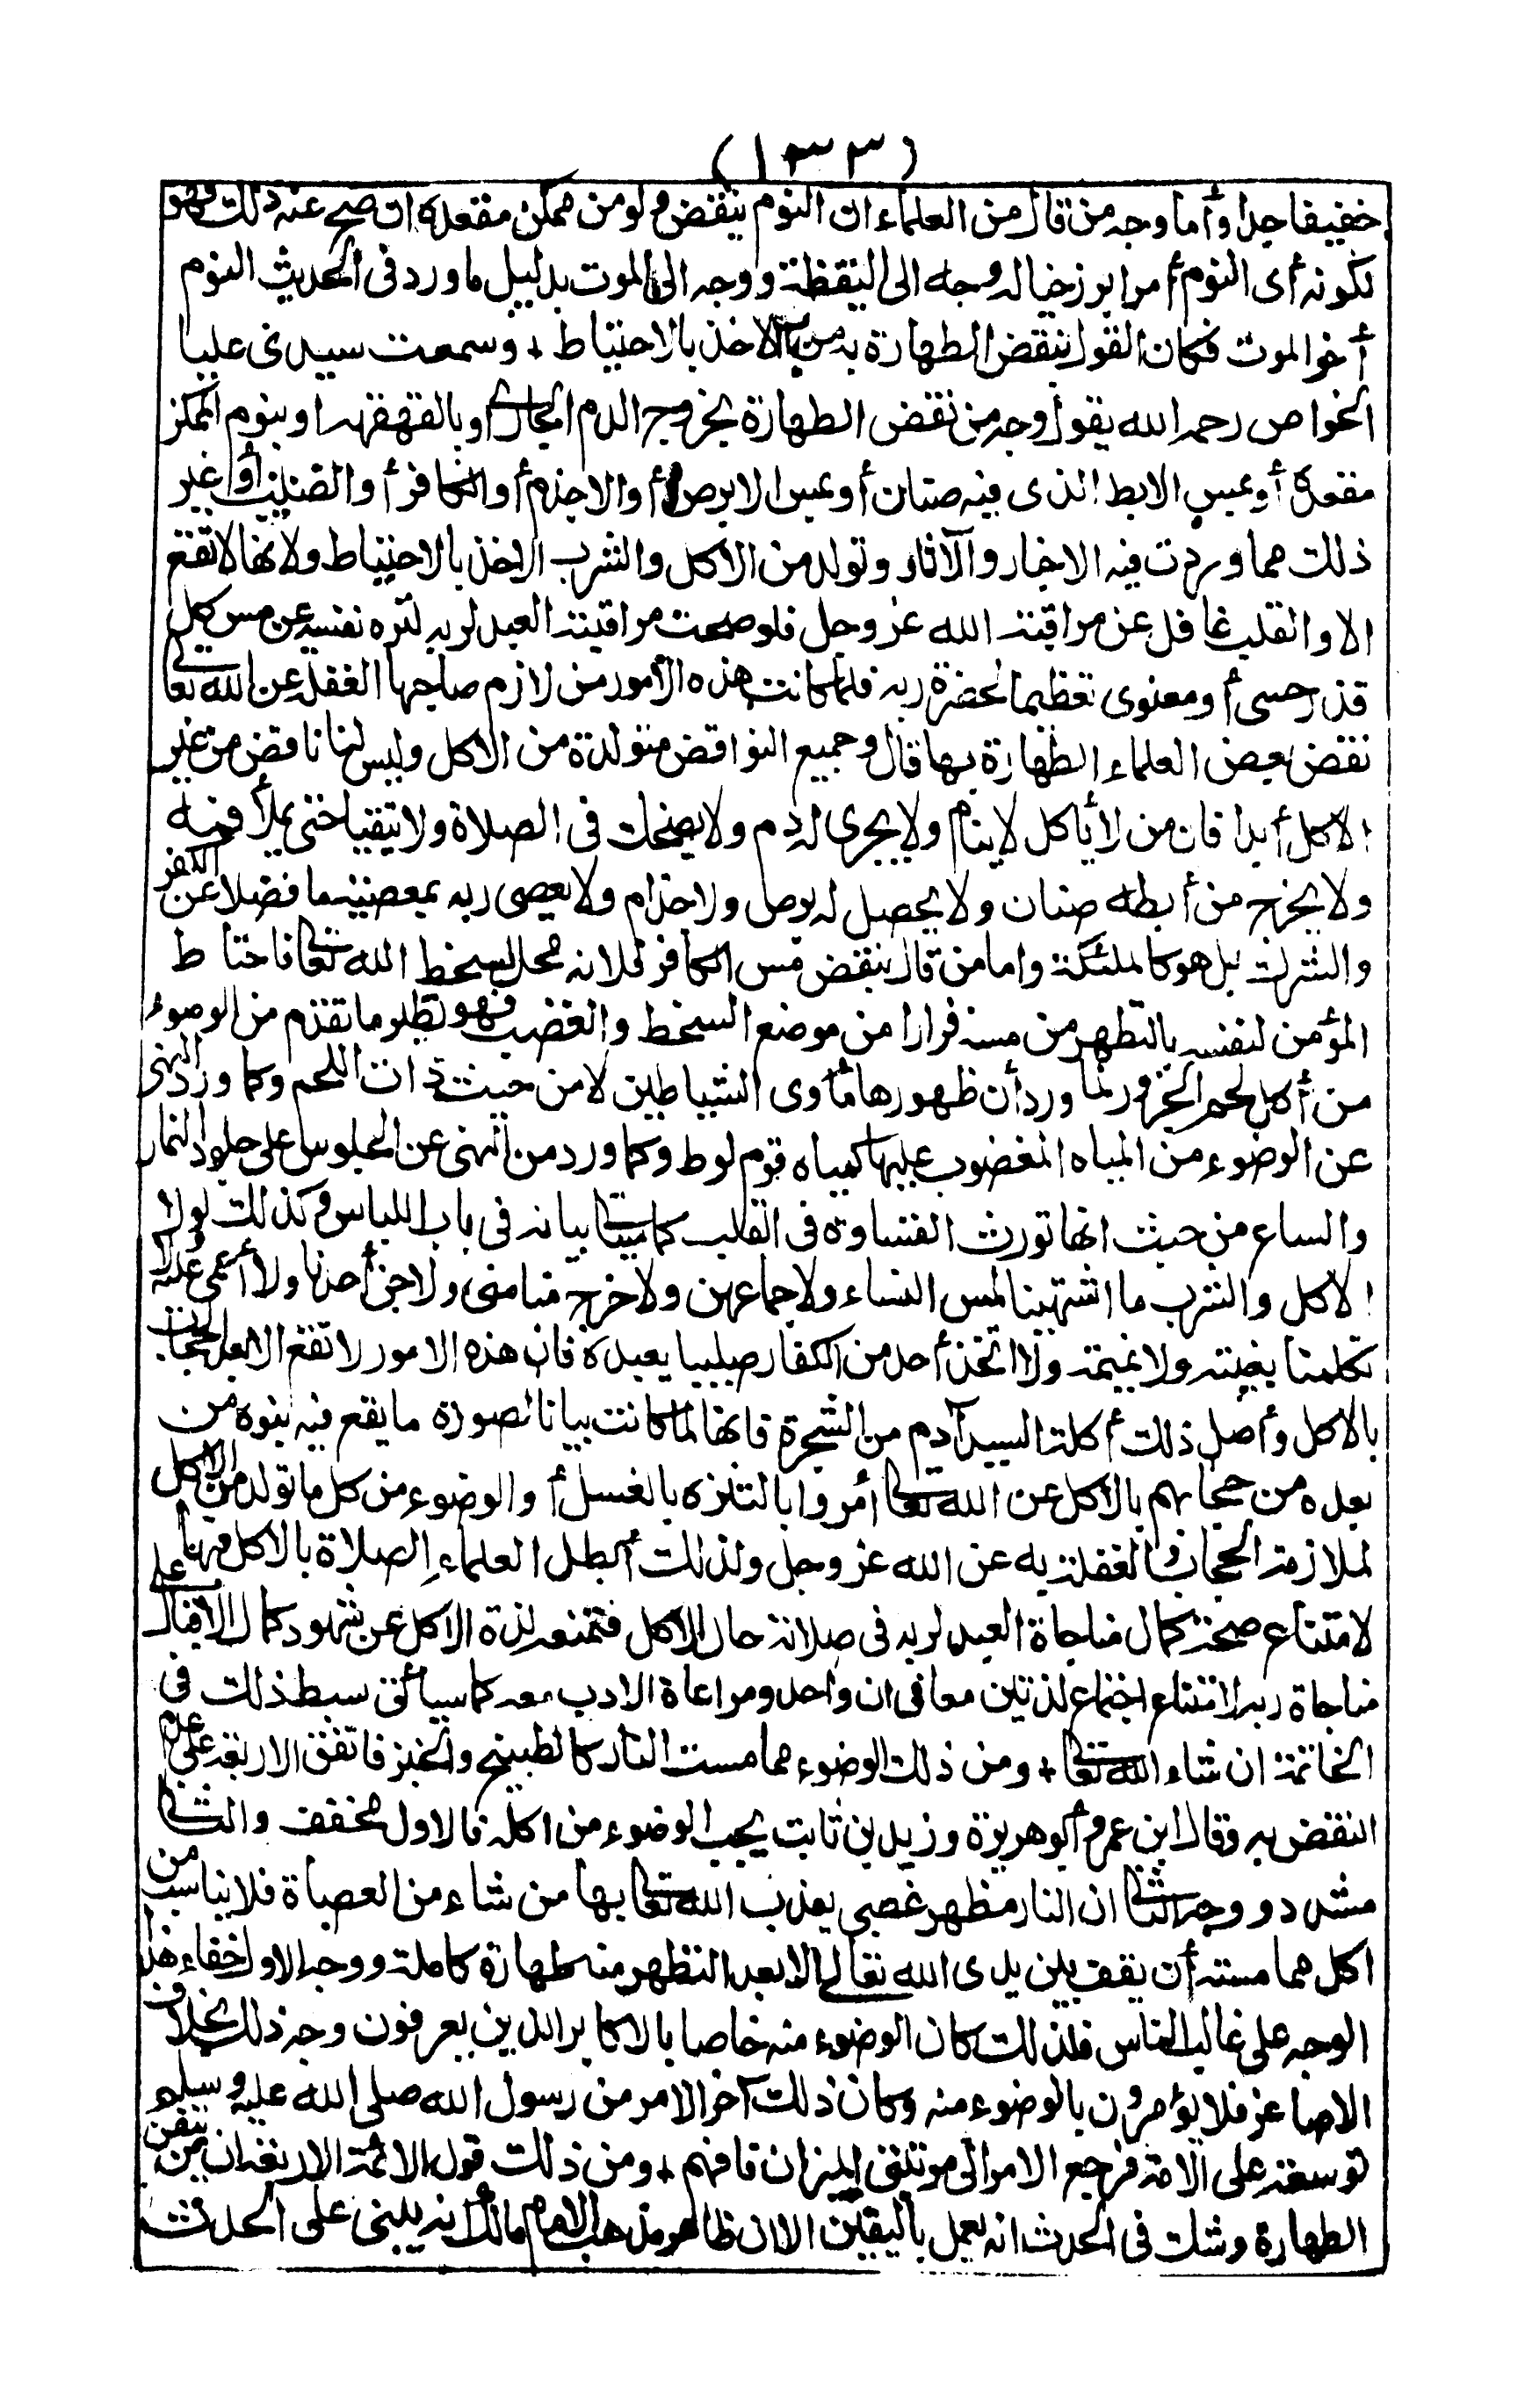 (١٣٣)
خفيفا جدا وأما وجه من قال من العلماء ان النوم ينقض ولو من ممكن مقعده ان صح عنه ذلك فهو
لكونه أى النوم أمرا برزخيا له وجه الى اليقظة ووجه الى الموت بدليل ما ورد فى الحديث النوم
أخو الموت فكان القول بنقض الطهارة به من باب الاخذ بالاحتياط + وسمعت سيدى عليا
الخواص رحمه الله يقول وجه من نقض الطهارة بخروج الدم الجارى أو بالقهقهة او بنوم الممكن
مقعده أو بمس الابط الذى فيه صنان أو بمس الابرص أو الاجذم أو الكافر أو الصليب أو غير
ذلك مما وردت فيه الاخبار والآثار وتولد من الاكل والشرب الاخذ بالاحتياط ولانها لا تقع
الا والقلب غافل عن مراقبة الله عز وجل فلو صحت مراقبة العبد لربه لنزه نفسه عن مس كل
قذر حسى أو معنوى تعظيما لحضرة ربه فلما كانت هذه الأمور من لازم صاحبها الغفلة عن الله تعالى
نقض بعض العلماء الطهارة بها قال وجميع النواقض متولدة من الاكل وليس لنا ناقض من غير
الاكل أبدا فان من لا يأكل لا ينام ولا يجرى له دم ولا يضحك فى الصلاة ولا يتقيا حتى يملأ فمه
ولا يخرج من أبطه صنان ولا يحصل له برص ولا جذام ولا يعصى ربه بمعصية ما فضلا عن الكفر
والشرك بل هو كالملئكة واما من قال بنقض مس الكافر فلانه محل لسخط الله تعالى فاحتاط
المؤمن لنفسه بالتطهر من مسه فرارا من موضع السخط والغضب فهو نظير ما تقدم من الوضوء
من أكل لحم الجزور لما ورد أن ظهورها مأوى الشياطين لا من حيث ذات اللحم وكما ورد النهى
عن الوضوء من المياه المغضوب عليها كمياه قوم لوط وكما ورد من النهى عن الجلوس على جلود النمار
والسباع من حيث انها تورث القساوة فى القلب كما سيأتى بيانه فى باب اللباس وكذلك لولا
الاكل والشرب ما اشتهينا لمس النساء ولا جماعهن ولا خرج منا منى ولا جن أحدنا ولا أغمى عليه ولا
تكلمنا بغيبة ولا نميمة ولا اتخذ أحد من الكفار صليبا يعبده فان هذه الامور لا تقع الا بعد الحجاب
بالاكل وأصل ذلك أكلة السيد آدم من الشجرة فانها لما كانت بيانا لصورة ما يقع فيه بنوه من
بعده من حجابهم بالاكل عن الله تعالى أمروا بالتنزه بالغسل أو الوضوء من كل ما تولد من الاكل
لملازمة الحجاب والغفلة به عن الله عز وجل ولذلك أبطل العلماء الصلاة بالاكل فيها
لامتناع صحة كمال مناجاة العبد لربه فى صلاته حال الاكل فتمنعه لذة الاكل عن شهود كمال الاقبال على
مناجاة ربه لامتناع اجتماع لذتين معا فى ان واحد ومراعاة الادب معه كما سيأتى بسط ذلك فى
الخاتمة ان شاء الله تعالى + ومن ذلك الوضوء مما مست النار كالطبيخ والخبز فاتفق الاربعة على عدم
النقض به وقال ابن عمر وأبو هريرة وزيد بن ثابت يجب الوضوء من اكله فالاول مخفف والثانى
مشدد ووجه الثانى ان النار مظهر غضبى يعذب الله تعالى بها من شاء من العصاة فلا يناسب من
اكل مما مسته أن يقف بين يدى الله تعالى الا بعد التطهر منه طهارة كاملة ووجه الاول خفاء هذا
الوجه على غالب الناس فلذلك كان الوضوء منه خاصا بالاكابر الذين يعرفون وجه ذلك بخلاف
الاصاغر فلا يؤمرون بالوضوء منه وكان ذلك آخر الامر من رسول الله صلى الله عليه وسلم
توسعة على الامة فرجع الامر الى مرتبتى الميزان فافهم + ومن ذلك قول الائمة الاربعة ان من تيقن
الطهارة وشك فى الحدث انه يعمل باليقين الا ان ظاهر مذهب الامام مالك أنه يبنى على الحدث